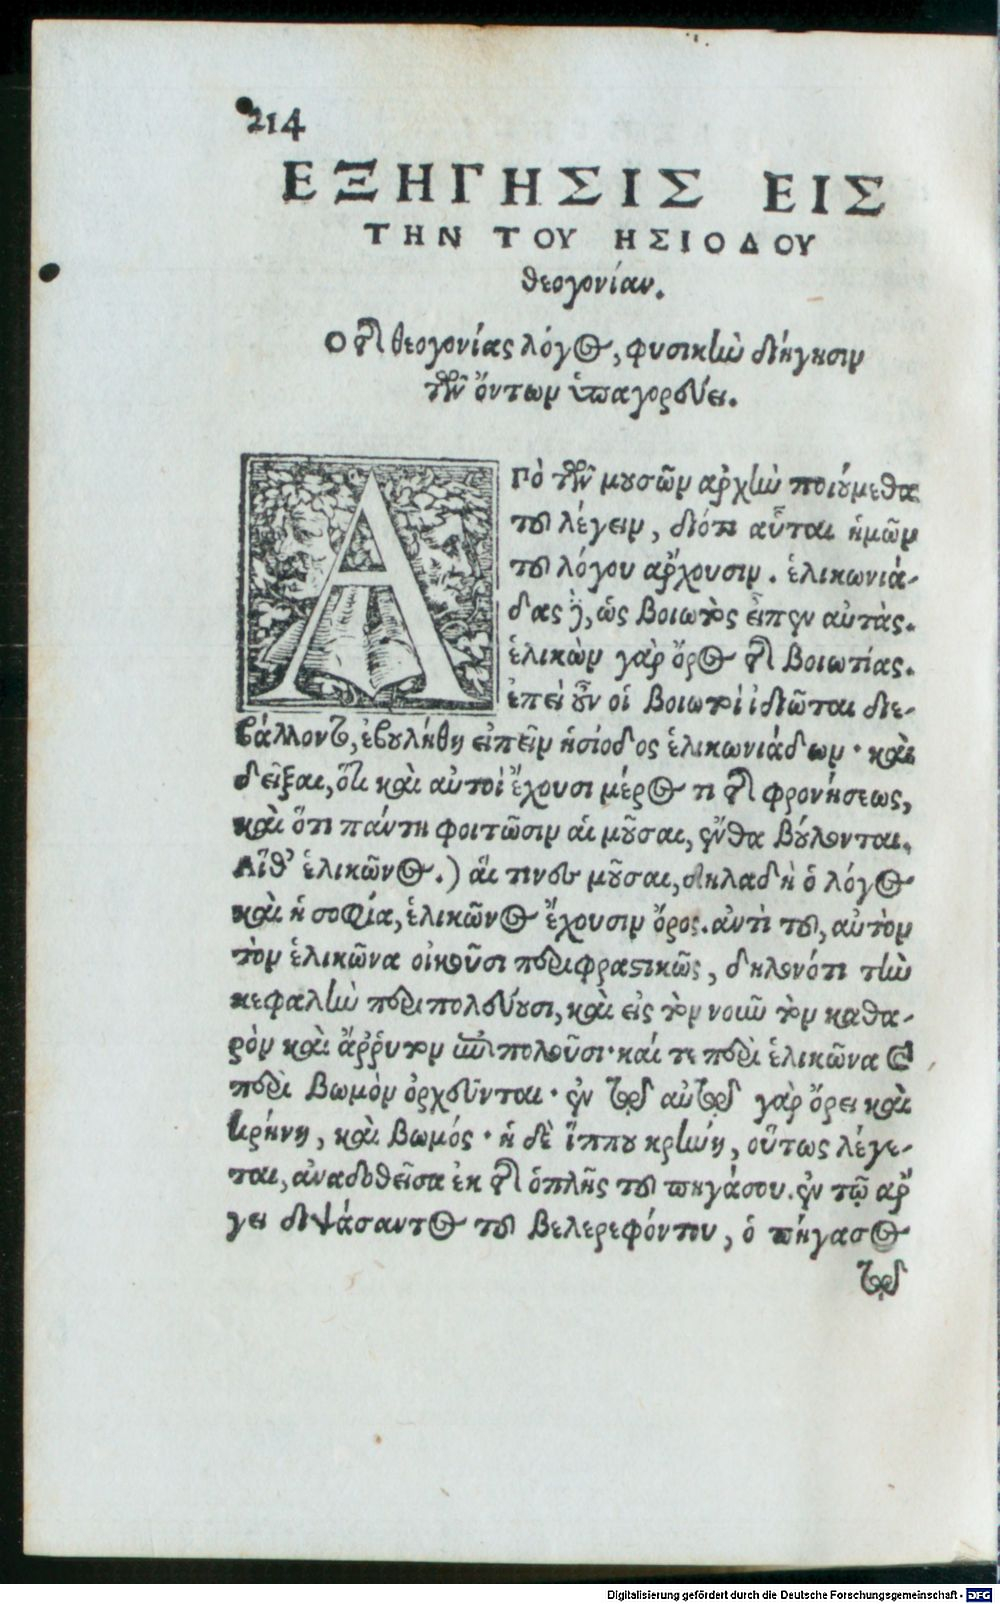 214
ΕΞΗΓΗΣΙΣ ΕΙΣ
ΤΗΝ ΤΟΥ ΗΣΙΟΔΟΥ
θεογονίαν.
Ο τῆς θεογονίας λόγος, φυσικὴν διήγησιν
τῶν ὄντων ὑπαγορεύει.
ΑΠὸ τῶν μουσῶν ἀρχὴν ποιούμεθα
τοῦ λέγειν, διότι αὗται ἡμῶν
τοῦ λόγου ἄρχουσιν. ἑλικωνιά-
δας δὲ, ὡς βοιωτὸς εἶπεν αὐτὰς.
ἑλικὼν γὰρ ὄρος τῆς βοιωτίας.
ἐπεὶ οὖν οἱ βοιωτοὶ ἰδιῶται διε-
βάλλοντο, ἐβουλήθη εἰπεῖν ἡσίοδος ἑλικωνιάδων· καὶ
δεῖξαι, ὅτι καὶ αὐτοὶ ἔχουσι μέρος τι τῆς φρονήσεως,
καὶ ὅτι πάντη φοιτῶσιν αἱ μοῦσαι, ἔνθα βούλονται.
Αἵθ’ ἑλικῶνος.) αἵ τινες μοῦσαι, δηλαδὴ ὁ λόγος
καὶ ἡ σοφία, ἑλικῶνος ἔχουσιν ὄρος. ἀντὶ τοῦ, αὐτὸν
τὸν ἑλικῶνα οἰκοῦσι περιφραστικῶς, δηλονότι τὴν
κεφαλὴν περιπολεύουσι, καὶ εἰς τὸν νοῦν τὸν καθα-
ρὸν καὶ ἄῤῥυτον περιπολοῦσι· καί τε περὶ ἑλικῶνα καὶ
περὶ βωμὸν ὀρχεῦνται· ἐν τῷ αὐτῷ γὰρ ὄρει καὶ
κρήνη, καὶ βωμός· ἡ δὲ ἵππου κρήνη, οὕτως λέγε-
ται, ἀναδοθεῖσα ἐκ τῆς ὁπλῆς τοῦ πηγάσου. ἐν τῷ ἄρ
γει διψάσαντος τοῦ βελερεφόντου, ὁ πήγασος
τῷ
Digitalisierung gefördert durch die Deutsche Forschungsgemeinschaft - DFG